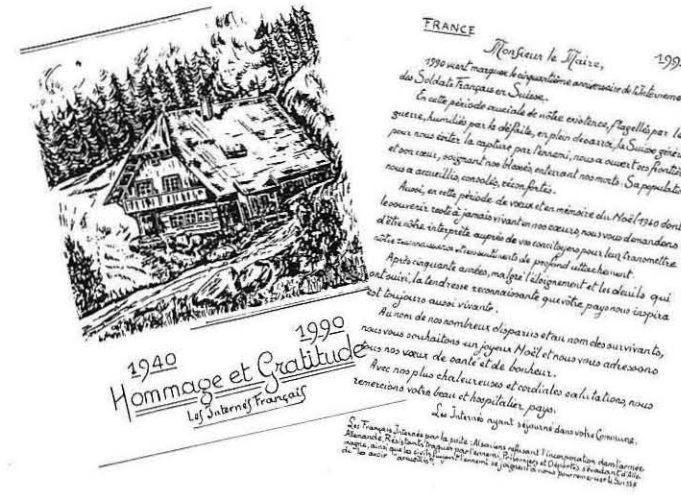 1940
1990
Hommage et Gratitude
Les Internés Français
FRANCE
Monsieur le Maire,
1990 vient marquer le cinquantième anniversaire de l'Interneme
des Soldats Français en Suisse.
En cette période cruciale de nôtre existence, flagellés par la
guerre, humiliés par la défaite, en plein désarroi, la Suisse géné
pour nous éviter la capture par l'ennemi, nous a ouvert ses frontiè
et son cœur, soignant nos blessés, enterrant nos morts. Sa populatio
nous a accueillis, consolés, réconfortés.
Aussi, en cette période de vœux et en mémoire du Noël 1940 dont
le souvenir reste à jamais vivant en nos cœurs, nous vous demandons
d'être nôtre interprète auprès de vos concitoyens pour leur transmettre
nôtre reconnaissance et nos sentiments de profond attachement.
Après cinquante années, malgré l'éloignement et les deuils qui
ont suivi, la tendresse reconnaissante que vôtre pays nous inspira
est toujours aussi vivante.
Au nom de nos nombreux disparus et au nom des survivants,
nous vous souhaitons un joyeux Noël et nous vous adressons
tous nos vœux de santé et de bonheur.
Avec nos plus chaleureuses et cordiales salutations, nous
remercions vôtre beau et hospitalier pays.
Les Internés ayant séjourné dans vôtre Commune.
Les Français Internés par la suite: Alsaciens refusant l'incorporation dans l'armée
Allemande, Résistants traqués par l'ennemi, Prisonniers et Déportés, s'évadant d'Alle-
magne, ainsi que les civils fuyant l'ennemi se joignent à nous pour remercier la Suisse
de les avoir accueillis.